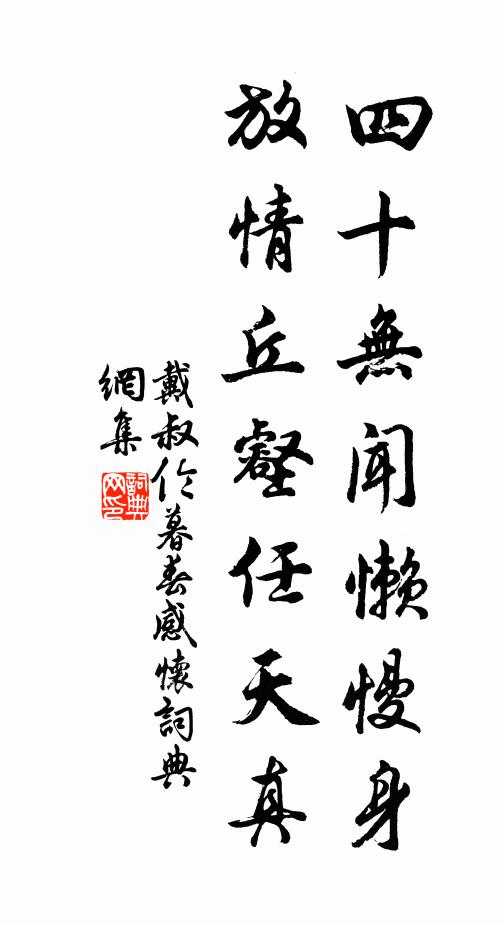 四十無聞懶慢身
放情丘壑任天真
戴叔伦暮春感懷詞典
網集
詞典
网印